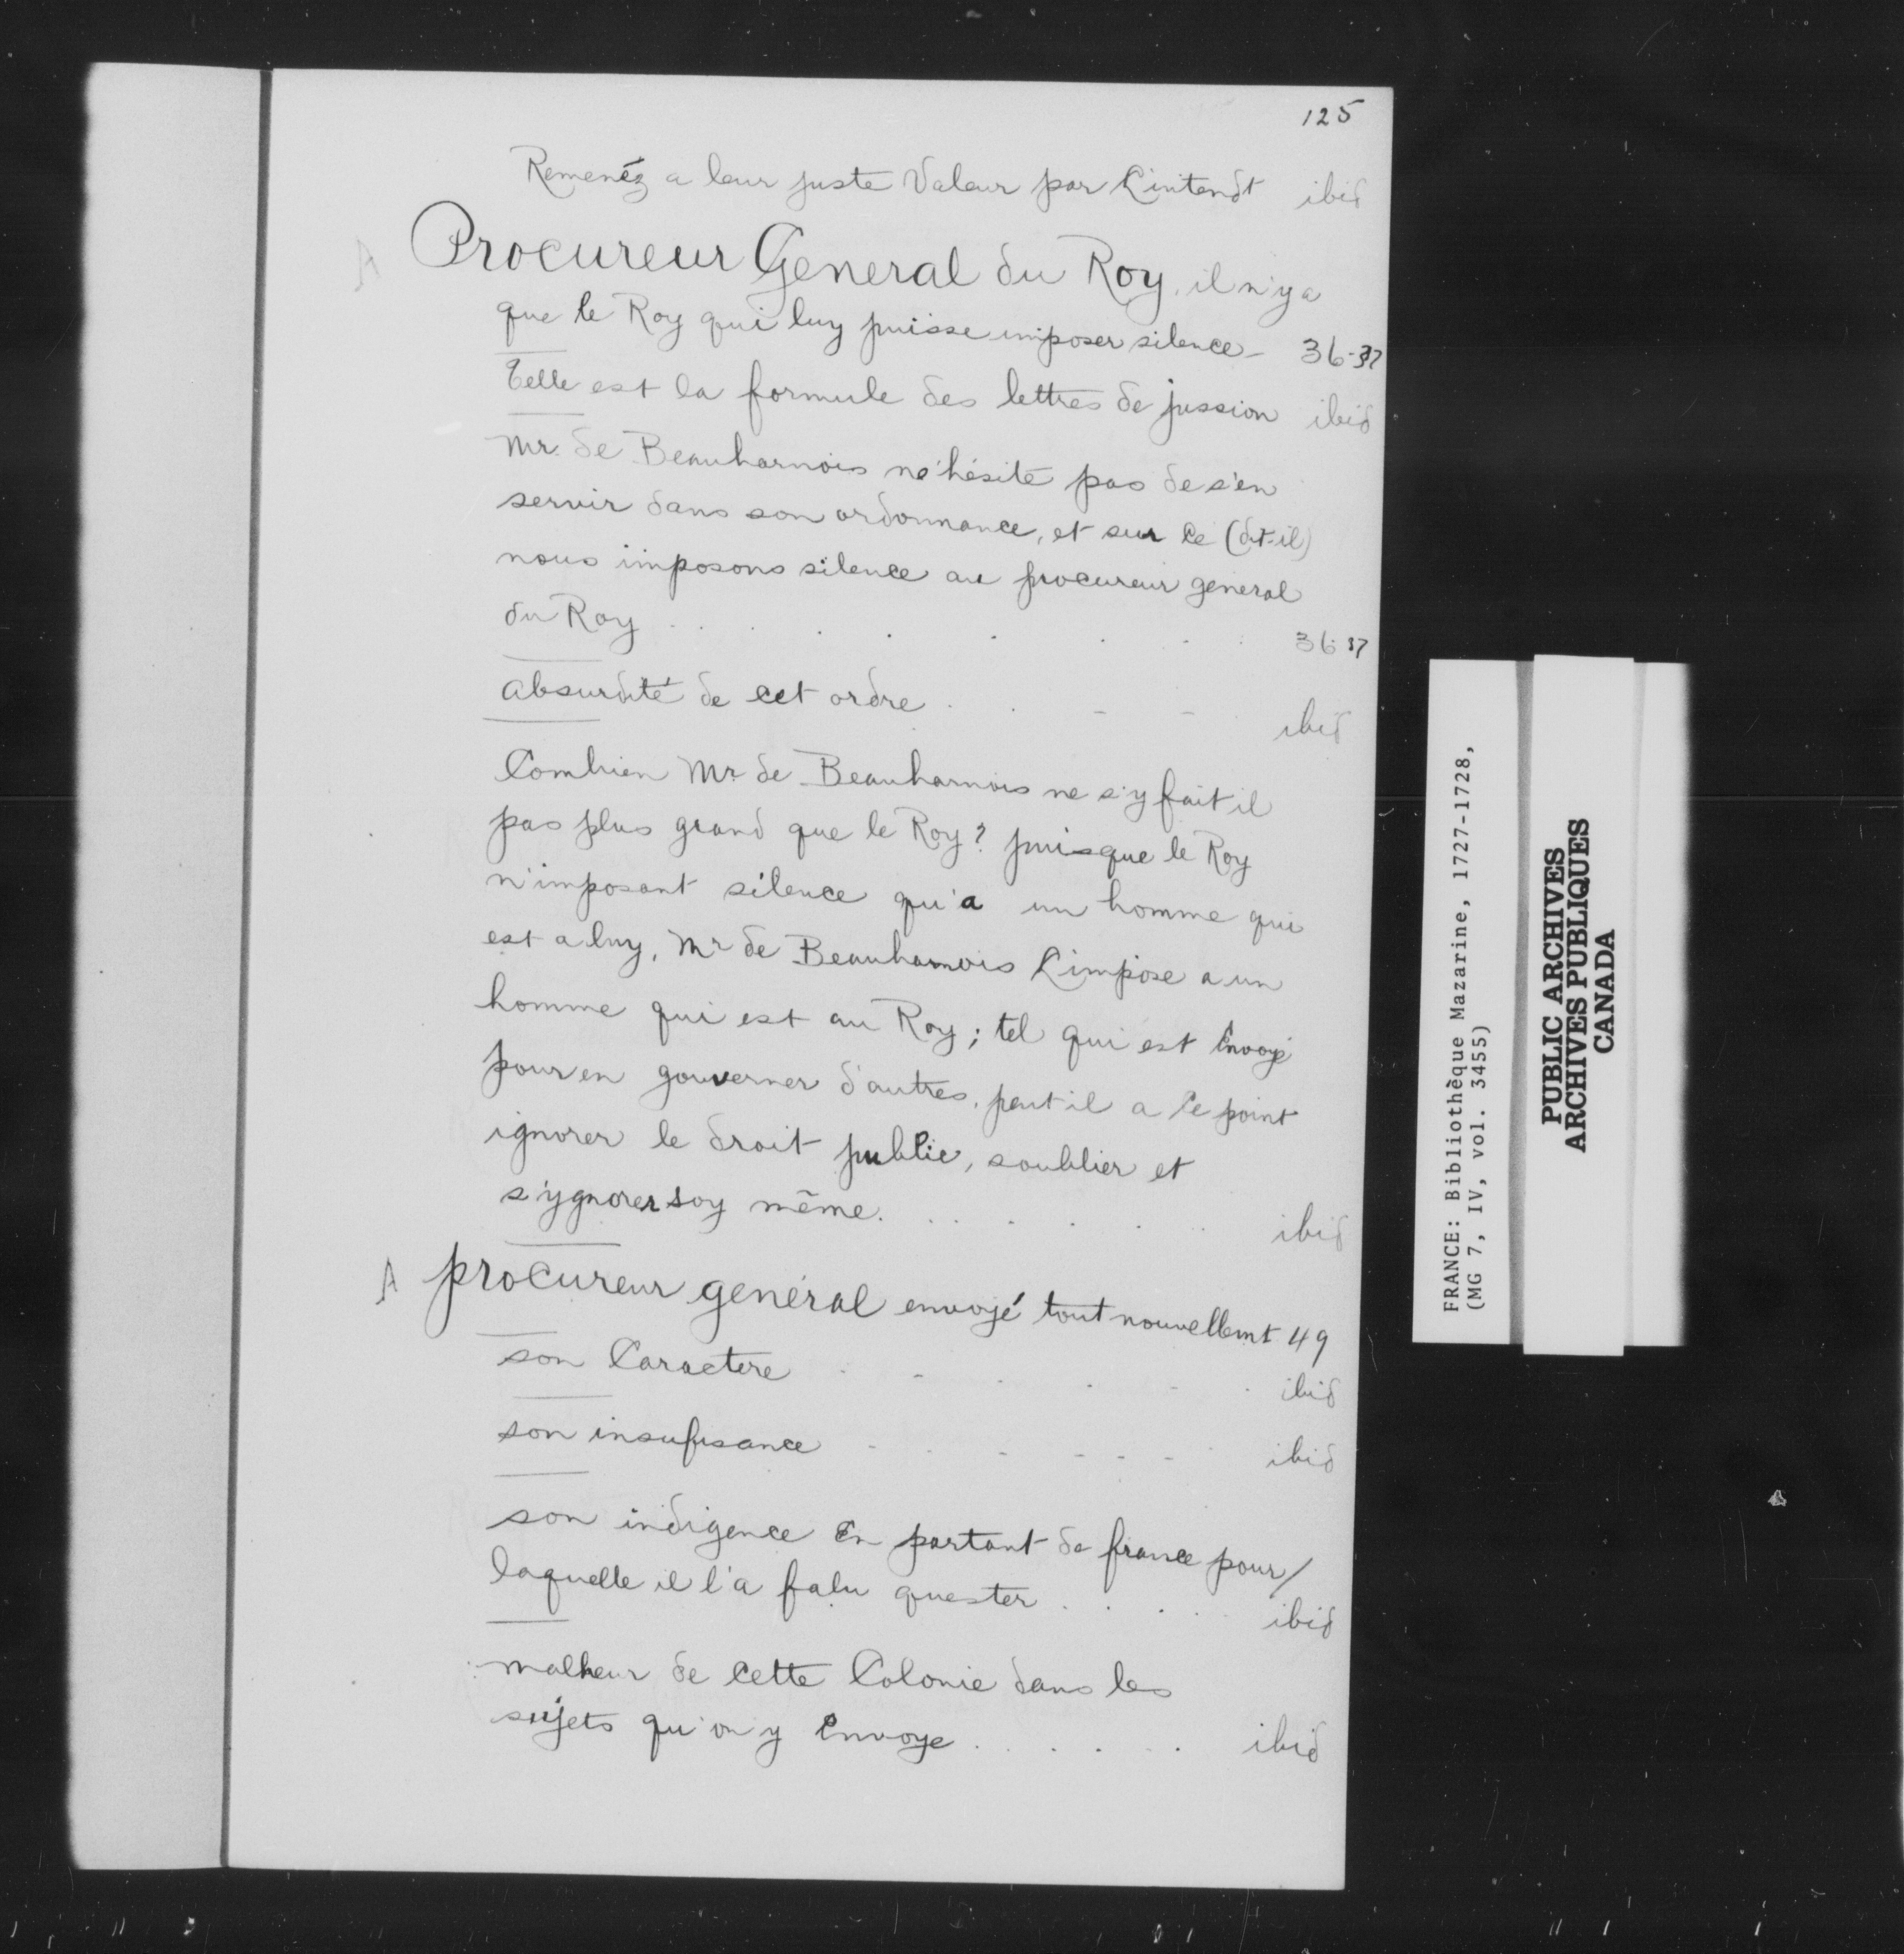 125
Remenéz a leur juste Valeur par L'intendt ibid
A Procureur General du Roy, il n'y a
que le Roy qui luy puisse imposer silence - 36-37
Telle est la formule des lettres de jussion ibid
Mr. de Beauharnois n'hésite pas de s'en
servir dans son ordonnance, et sur Ce (dit-il)
nous imposons silence au procureur general
du Roy . . . . . . . 36-37
absurdité de cet ordre . . - - ibid
Combien Mr de Beauharnois ne s'y fait il
pas plus grand que le Roy? puisque le Roy
n'imposant silence qu'a un homme qui
est a luy, Mr de Beauharnois L'impose a un
homme qui est au Roy; tel qui est Envoyé
pour en gouverner d'autres, peut il a Ce point
ignorer le droit public, soublier et
s'ygnorer soy même. . . . . . . ibid
A procureur général envoyé tout nouvellemt 49
son Caractere . - . . - . ibid
son insufisance - . . - - - - . ibid
son indigence En partant de france pour/
laquelle il l'a falu quester . . . . ibid
malheur de Cette Colonie dans les
sujets qu'on y Envoye . . . . . ibid
FRANCE: Bibliothèque Mazarine, 1727-1728,
(MG 7, IV, vol. 3455)
PUBLIC ARCHIVES
ARCHIVES PUBLIQUES
CANADA